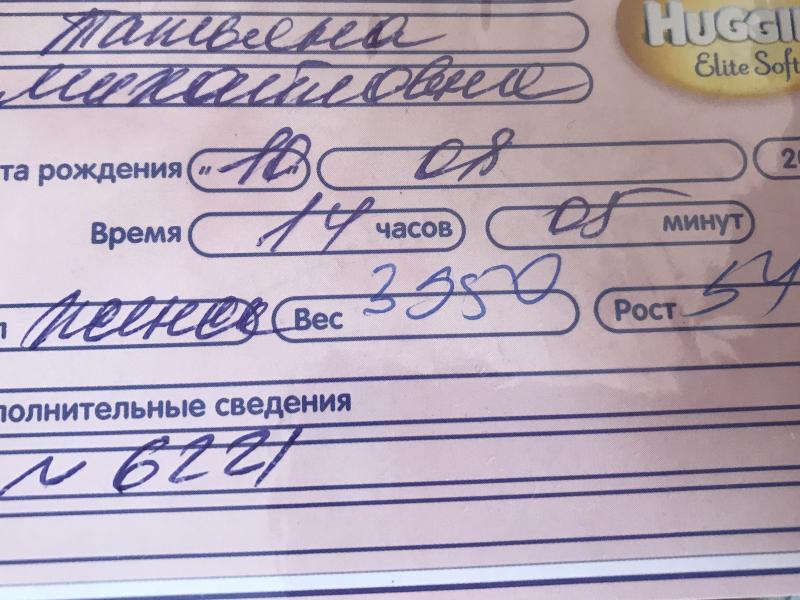 Татьяна
HUGGI
Elite Soft
Михайловна
та рождения „10“ 08 20
Время 14 часов 05 минут
л женск Вес 3950 Рост 54
полнительные сведения
№ 6221